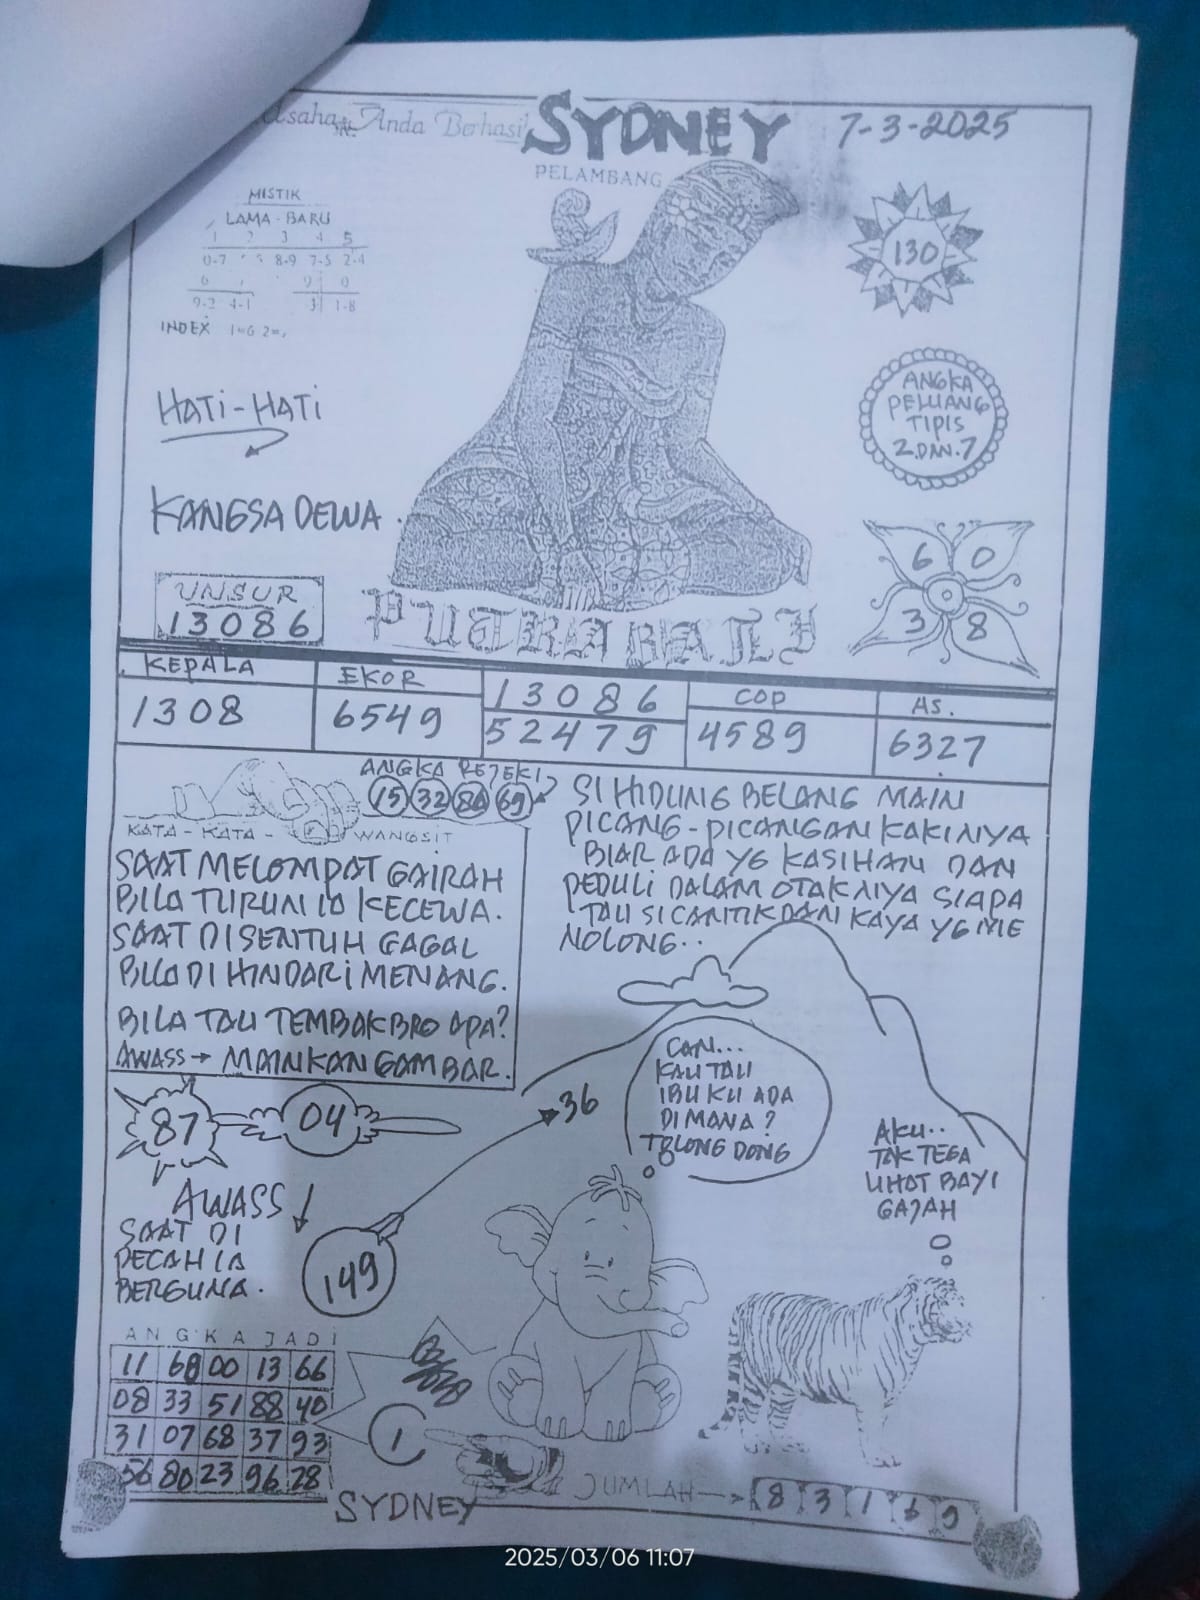 Usaha Anda Berhasil
SYDNEY
7-3-2025
PELAMBANG
MISTIK
LAMA - BARU
1 2 3 4 5
0-7 8-9 7-5 2-4
6 9 0
9-2 4-1 3 1-8
INDEX 1=6 2=
130
ANGKA
PELUANG
TIPIS
2.DAN.7
HATI-HATI
KANGSA DEWA.
6 0
3 8
UNSUR
13086
PUTRA BALI
KEPALA
1308
EKOR
6549
13086
52479
COP
4589
AS.
6327
ANGKA REJEKI
15 32 86 69
KATA - KATA - WANGSIT
SAAT MELOMPAT GAIRAH
BILA TURUN IA KECEWA.
SAAT DISENTUH GAGAL
BILA DI HINDARI MENANG.
BILA TAU TEMBAK BRO APA?
AWASS → MAINKAN GAMBAR.
SI HIDUNG BELANG MAIN
PICANG-PICANGAN KAKINYA
BIAR ADA YG KASIHAN DAN
PEDULI DALAM OTAKNYA SIAPA
TAU SI CANTIK DAN KAYA YG ME
NOLONG..
87
04
36
CAN...
KAU TAU
IBU KU ADA
DIMANA?
TOLONG DONG
AKU..
TAK TEGA
LIHAT BAYI
GAJAH
AWASS
SAAT DI
PECAH IA
BERGUNA.
149
ANGKA JADI
11 68 00 13 66
08 33 51 88 40
31 07 68 37 93
56 80 23 96 28
1
JUMLAH → 8 3 1 6 9
SYDNEY
2025/03/06 11:07